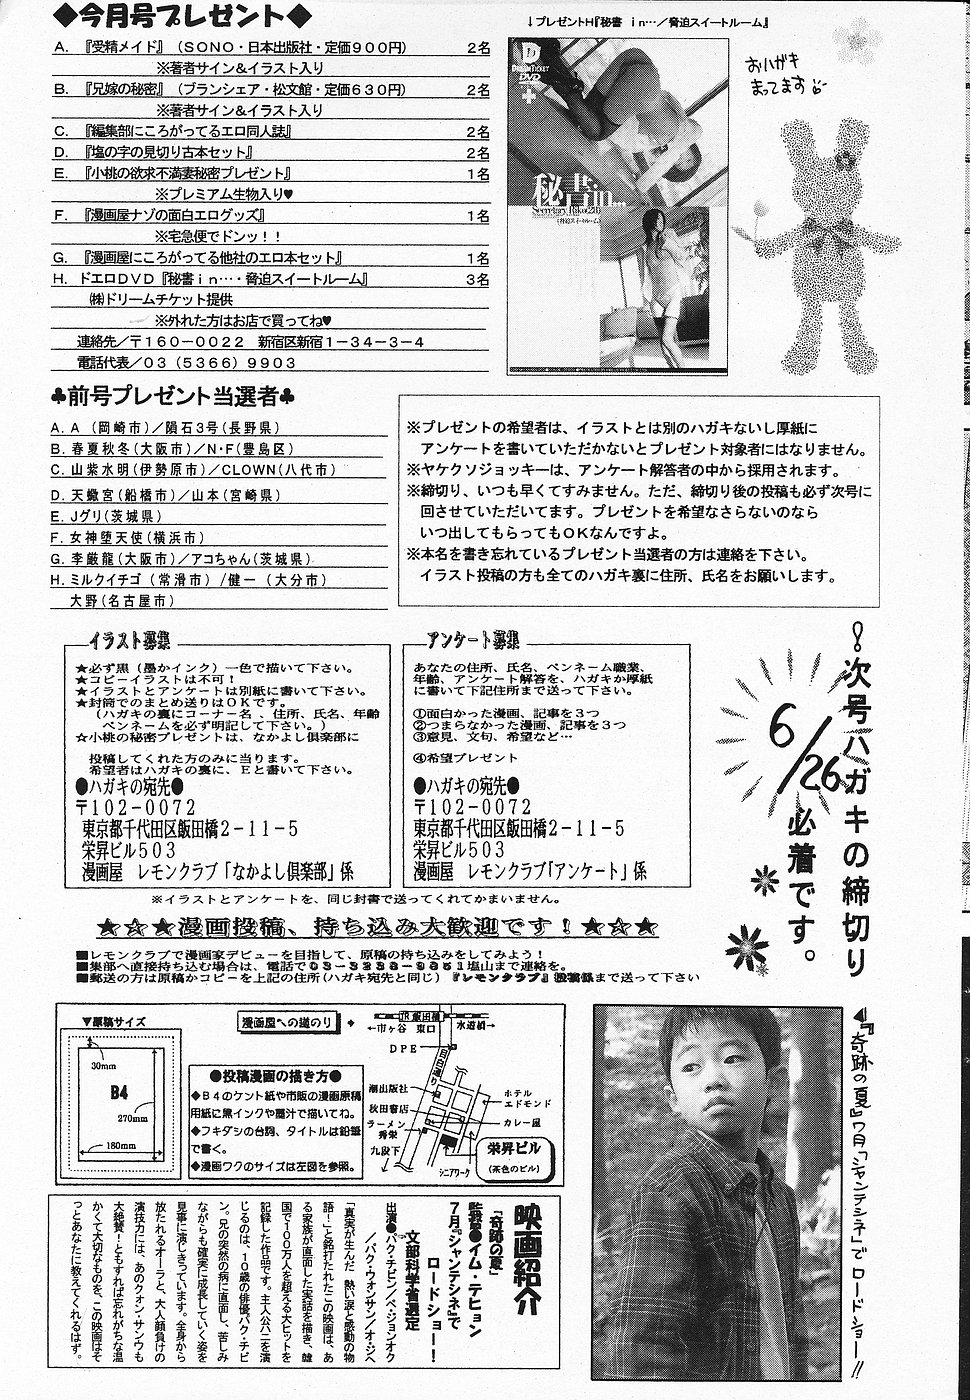 ◆今月号プレゼント◆
A. 『受精メイド』（SONO・日本出版社・定価900円） 2名
※著者サイン&イラスト入り
B. 『兄嫁の秘密』（ブランシェア・松文館・定価630円） 2名
※著者サイン&イラスト入り
C. 『編集部にころがってるエロ同人誌』 2名
D. 『塩の字の見切り古本セット』 2名
E. 『小桃の欲求不満妻秘密プレゼント』 1名
※プレミアム生物入り♥
F. 『漫画屋ナゾの面白エログッズ』 1名
※宅急便でドンッ！！
G. 『漫画屋にころがってる他社のエロ本セット』 1名
H. ドエロDVD『秘書in…・脅迫スイートルーム』 3名
㈱ドリームチケット提供
※外れた方はお店で買ってね♥
連絡先／〒160－0022 新宿区新宿1－34－3－4
電話代表／03（5366）9903
↓プレゼントH『秘書 in…／脅迫スイートルーム』
D
DREAM TICKET
DVD
秘書in...
(脅迫スイートルーム)
おハガキ
まってます
♣前号プレゼント当選者♣
A. A （岡崎市）／隕石3号（長野県）
B. 春夏秋冬（大阪市）／N・F（豊島区）
C. 山紫水明（伊勢原市）／CLOWN（八代市）
D. 天蠍宮（船橋市）／山本（宮崎県）
E. Jグリ（茨城県）
F. 女神堕天使（横浜市）
G. 李厳龍（大阪市）／アコちゃん（茨城県）
H. ミルクイチゴ（常滑市）／健一（大分市）
大野（名古屋市）
※プレゼントの希望者は、イラストとは別のハガキないし厚紙に
アンケートを書いていただかないとプレゼント対象者にはなりません。
※ヤケクソジョッキーは、アンケート解答者の中から採用されます。
※締切り、いつも早くてすみません。ただ、締切り後の投稿も必ず次号に
回させていただいてます。プレゼントを希望なさらないのなら
いつ出してもらってもOKなんですよ。
※本名を書き忘れているプレゼント当選者の方は連絡を下さい。
イラスト投稿の方も全てのハガキ裏に住所、氏名をお願いします。
イラスト募集
★必ず黒（墨かインク）一色で描いて下さい。
★コピーイラストは不可！
★イラストとアンケートは別紙に書いて下さい。
★封筒でのまとめ送りはOKです。
（ハガキの裏にコーナー名、住所、氏名、年齢
ペンネームを必ず明記して下さい。）
☆小桃の秘密プレゼントは、なかよし倶楽部に
投稿してくれた方のみに当ります。
希望者はハガキの裏に、Eと書いて下さい。
●ハガキの宛先●
〒102－0072
東京都千代田区飯田橋2－11－5
栄昇ビル503
漫画屋 レモンクラブ「なかよし倶楽部」係
アンケート募集
あなたの住所、氏名、ペンネーム職業、
年齢、アンケート解答を、ハガキか厚紙
に書いて下記住所まで送って下さい。
①面白かった漫画、記事を3つ
②つまらなかった漫画、記事を3つ
③意見、文句、希望など…
④希望プレゼント
●ハガキの宛先●
〒102－0072
東京都千代田区飯田橋2－11－5
栄昇ビル503
漫画屋 レモンクラブ「アンケート」係
次号ハガキの締切り
6/26
必着です。
※イラストとアンケートを、同じ封書で送ってくれてかまいません。
☆☆★漫画投稿、持ち込み大歓迎です！★☆☆
■レモンクラブで漫画家デビューを目指して、原稿の持ち込みをしてみよう！
■郵送の方は原稿かコピーを上記の住所（ハガキ宛先と同じ）『レモンクラブ』投稿係まで送って下さい
▼原稿サイズ
30mm
B4
270mm
180mm
漫画屋への道のり
●投稿漫画の描き方●
◆B4のケント紙や市販の漫画原稿
用紙に黒インクや墨汁で描いてね。
◆フキダシの台詞、タイトルは鉛筆
で書く。
◆漫画ワクのサイズは左図を参照。
JR飯田橋
←市ヶ谷 東口 水道橋→
DPE
目白通り
潮出版社
秋田書店
ラーメン
秀栄
九段下
ホテル
エドモンド
カレー屋
栄昇ビル
（茶色のビル）
シニアワーク
映画紹介
『奇跡の夏』
監督●イム・テヒョン
7月『シャンテシネ』で
ロードショー！
文部科学省選定
出演●パク・チビン／ペ・ジョンオク
／パク・ウォンサン／オ・ジヘ
「真実が生んだ、熱い涙と感動の物
語！」と銘打たれたこの映画は、あ
る家族が直面した実話を描き、韓
国で100万人を超える大ヒットを
記録した作品です。主人公ハニを演
じるのは、10歳の俳優パク・チビ
ン。兄の突然の病に直面し、苦しみ
ながらも確実に成長していく姿を
見事に演じきっています。全身から
放たれるオーラと、大人顔負けの
演技力には、あのクォン・サンウも
大絶賛！ともすれば忘れがちな温
かくて大切なものを、この映画はそ
っとあなたに教えてくれるはず。
◀『奇跡の夏』7月「シャンテシネ」でロードショー!!